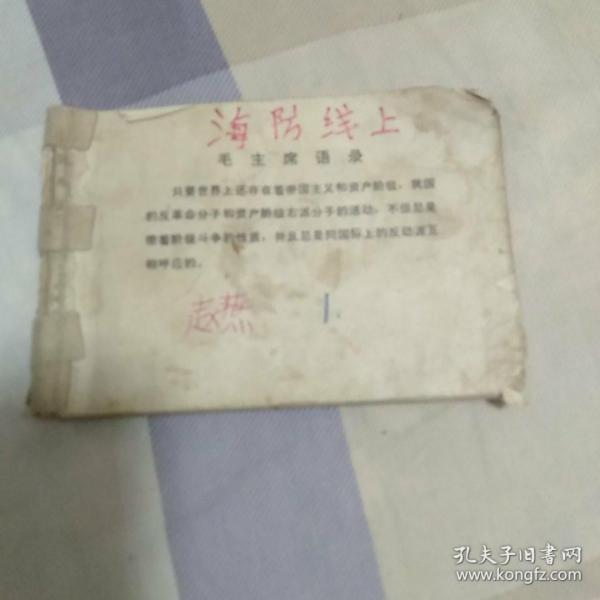 海防线上
毛主席语录
只要世界上还存在着帝国主义和资产阶级，我国
的反革命分子和资产阶级右派分子的活动，不但总是
带着阶级斗争的性质，并且总是同国际上的反动派互
相呼应的。
赵燕
1
孔夫子旧书网
www.kongfz.com